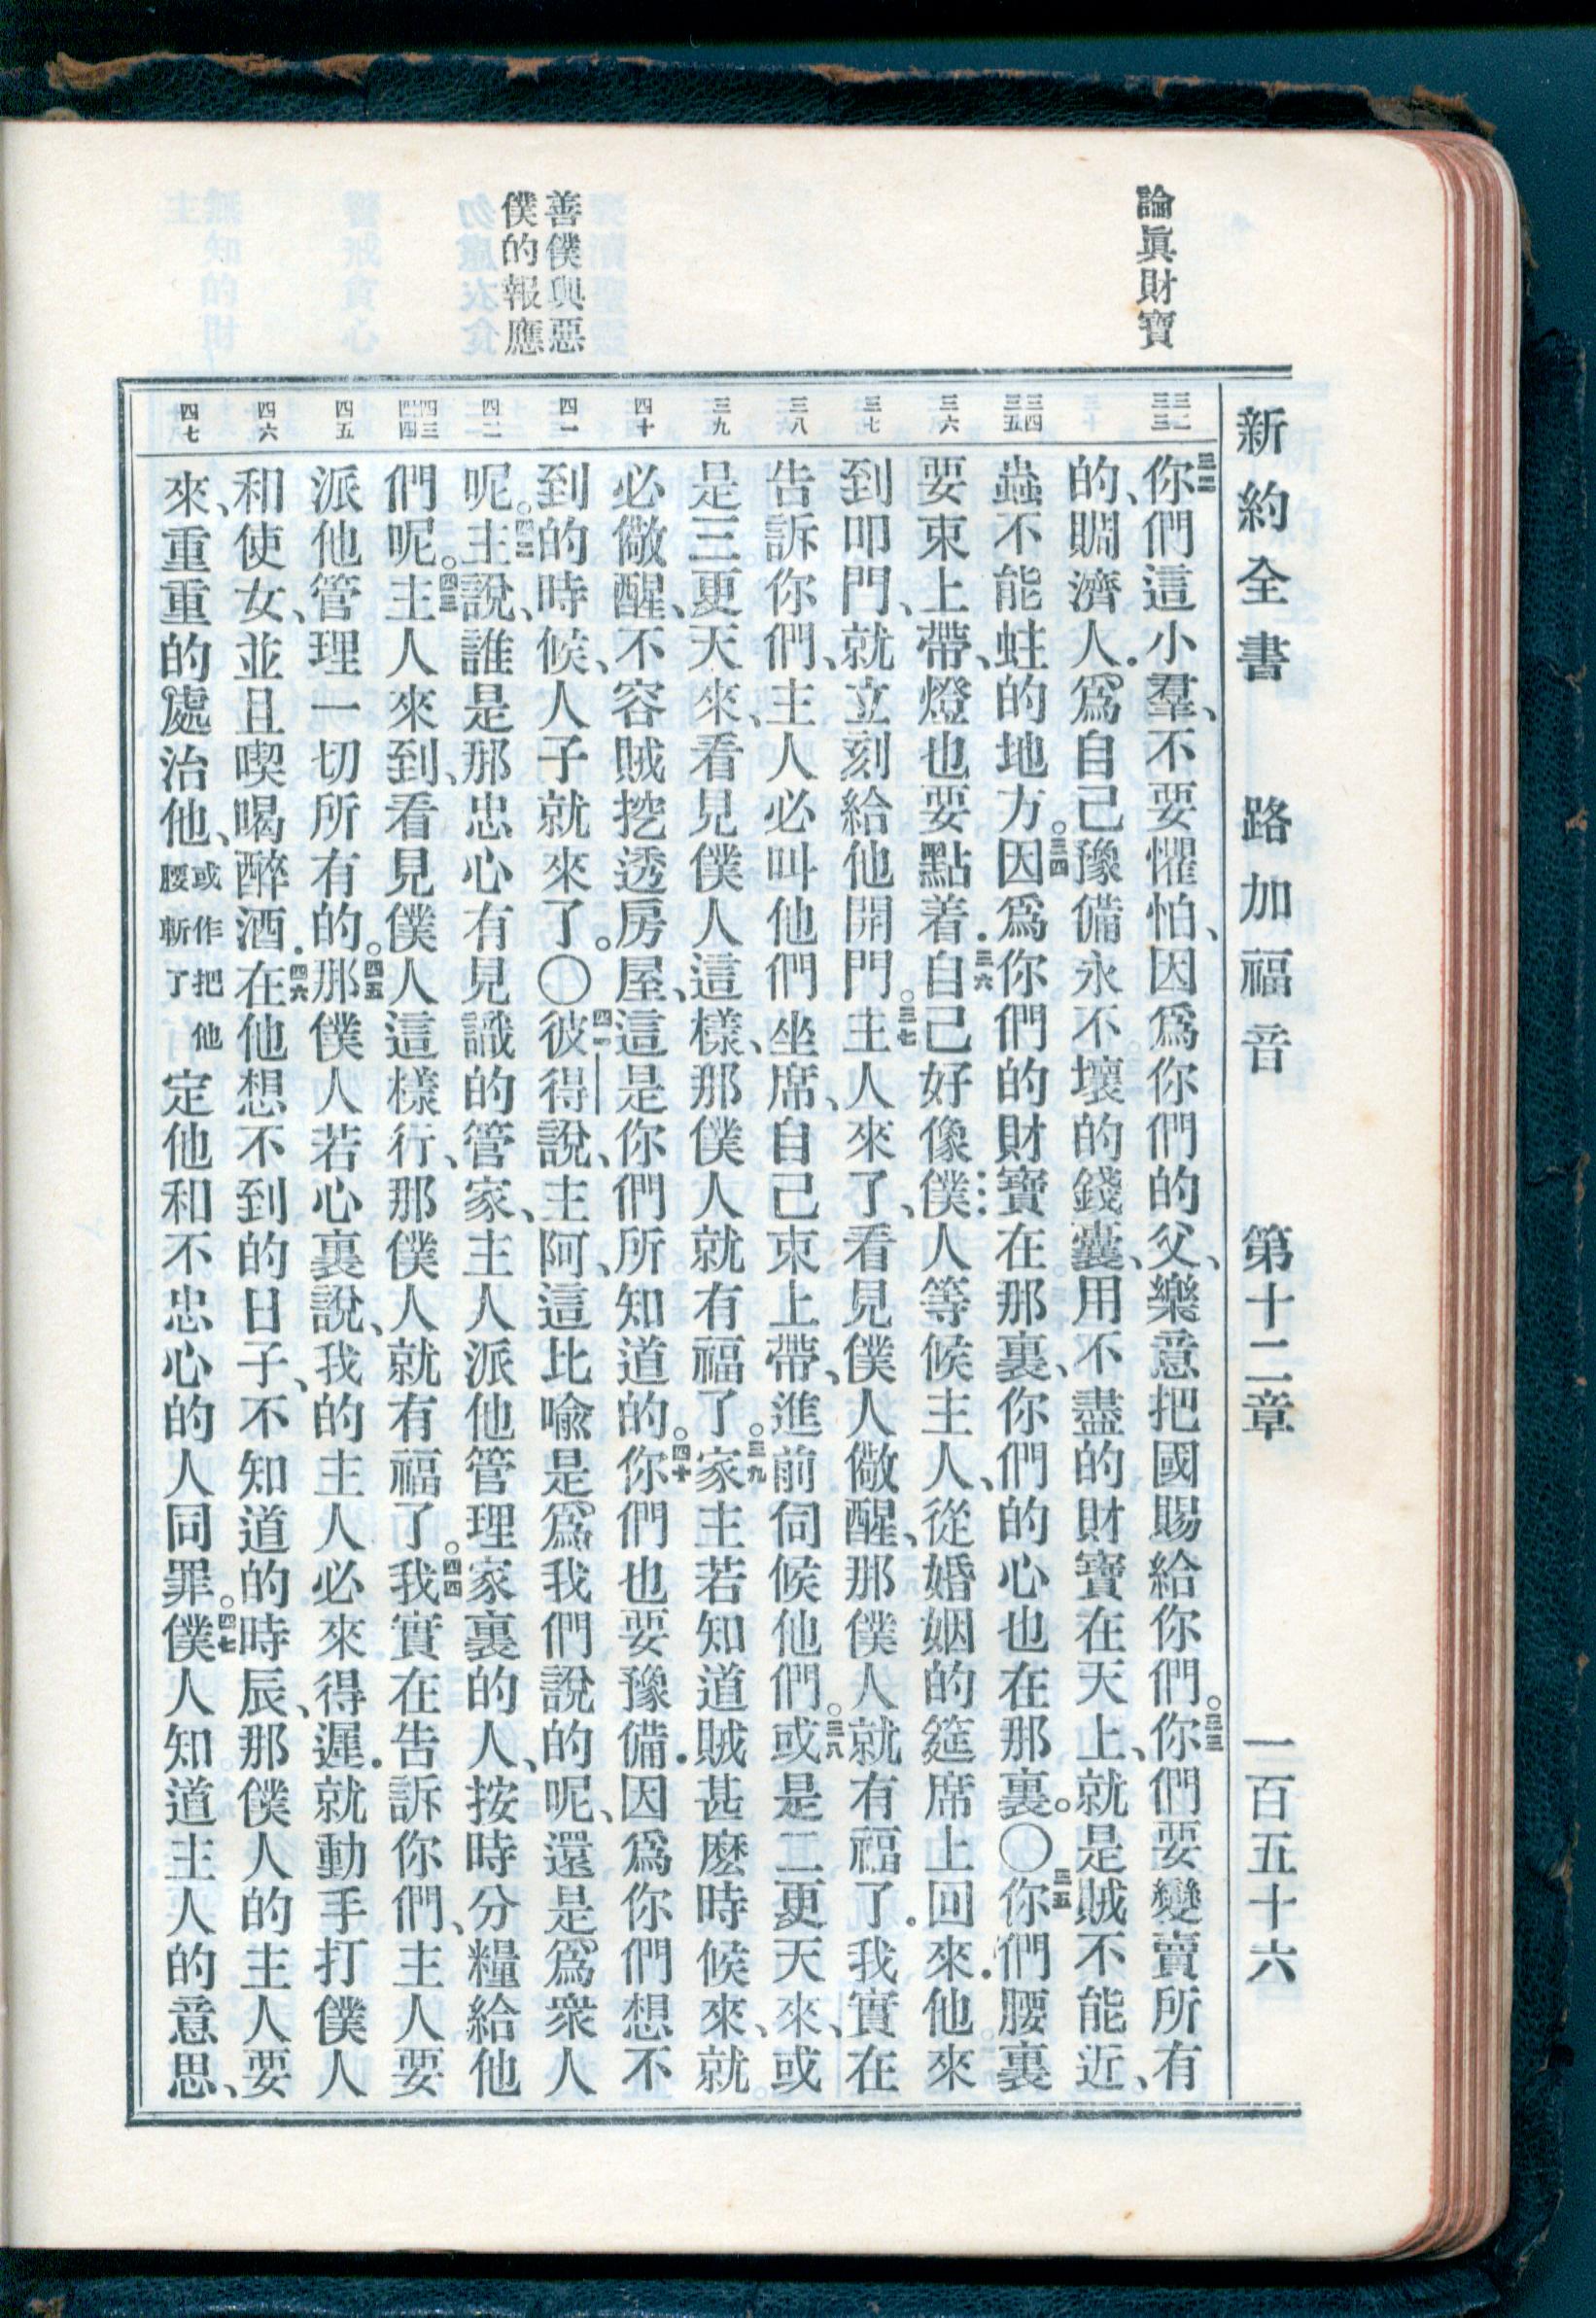 論眞財寶
善僕與惡
僕的報應
新約全書 路加福音 第十二章 一百五十六
三二
三三
三四
三五
三六
三七
三八
三九
四十
四一
四二
四三
四四
四五
四六
四七
三二你們這小羣、不要懼怕、因爲你們的父、樂意把國賜給你們。三三你們要變賣所有
的、賙濟人．爲自己豫備永不壞的錢囊、用不盡的財寶在天上、就是賊不能近、
蟲不能蛀的地方。三四因爲你們的財寶在那裏、你們的心也在那裏。〇三五你們腰裏
要束上帶、燈也要點着．三六自己好像僕人等候主人、從婚姻的筵席上回來．他來
到叩門、就立刻給他開門。三七主人來了、看見僕人儆醒、那僕人就有福了．我實在
告訴你們、主人必叫他們坐席、自己束上帶、進前伺候他們。三八或是二更天來、或
是三更天來、看見僕人這樣、那僕人就有福了。三九家主若知道賊甚麽時候來、就
必儆醒、不容賊挖透房屋、這是你們所知道的。四十你們也要豫備．因爲你們想不
到的時候、人子就來了。〇四一彼得說、主阿、這比喩是爲我們說的呢、還是爲衆人
呢。四二主說、誰是那忠心有見識的管家、主人派他管理家裏的人、按時分糧給他
們呢。四三主人來到、看見僕人這樣行、那僕人就有福了。四四我實在告訴你們、主人要
派他管理一切所有的。四五那僕人若心裏說、我的主人必來得遲．就動手打僕人
和使女、並且喫喝醉酒．四六在他想不到的日子、不知道的時辰、那僕人的主人要
來、重重的處治他、或作把他腰斬了定他和不忠心的人同罪。四七僕人知道主人的意思、